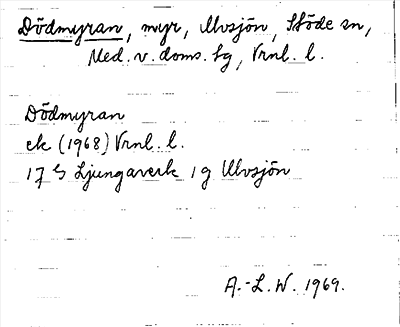 Dödmyran, myr, Ulvsjön, Stöde sn,
Med. v. doms. sg, Vrnl. l.
Dödmyran
ek (1968) Vrnl. l.
17 G Ljungaverk 1 g Ulvsjön
A.-L. W. 1969.